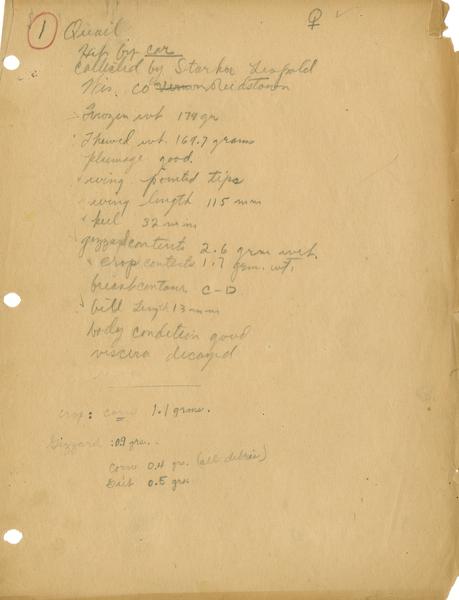 ① Quail ♀ ✓
Hit by car
Collected by Starker Leopold
Wis. Co ~~Vernon~~
Frozen wt 179 gr
Thawed wt. 169.7 grams
plumage good.
wing pointed tips
wing length 115 mm
keel 32 mm
gizzard contents 2.6 gram wet.
crop contents 1.7 gem. wt.
breast contour C-D
bill length 13 mm
body condition good
viscera decayed
crop: corn 1.1 grams.
Gizzard: 0.9 grm.
Corn 0.4 gr. (all debris)
Grit 0.5 grs